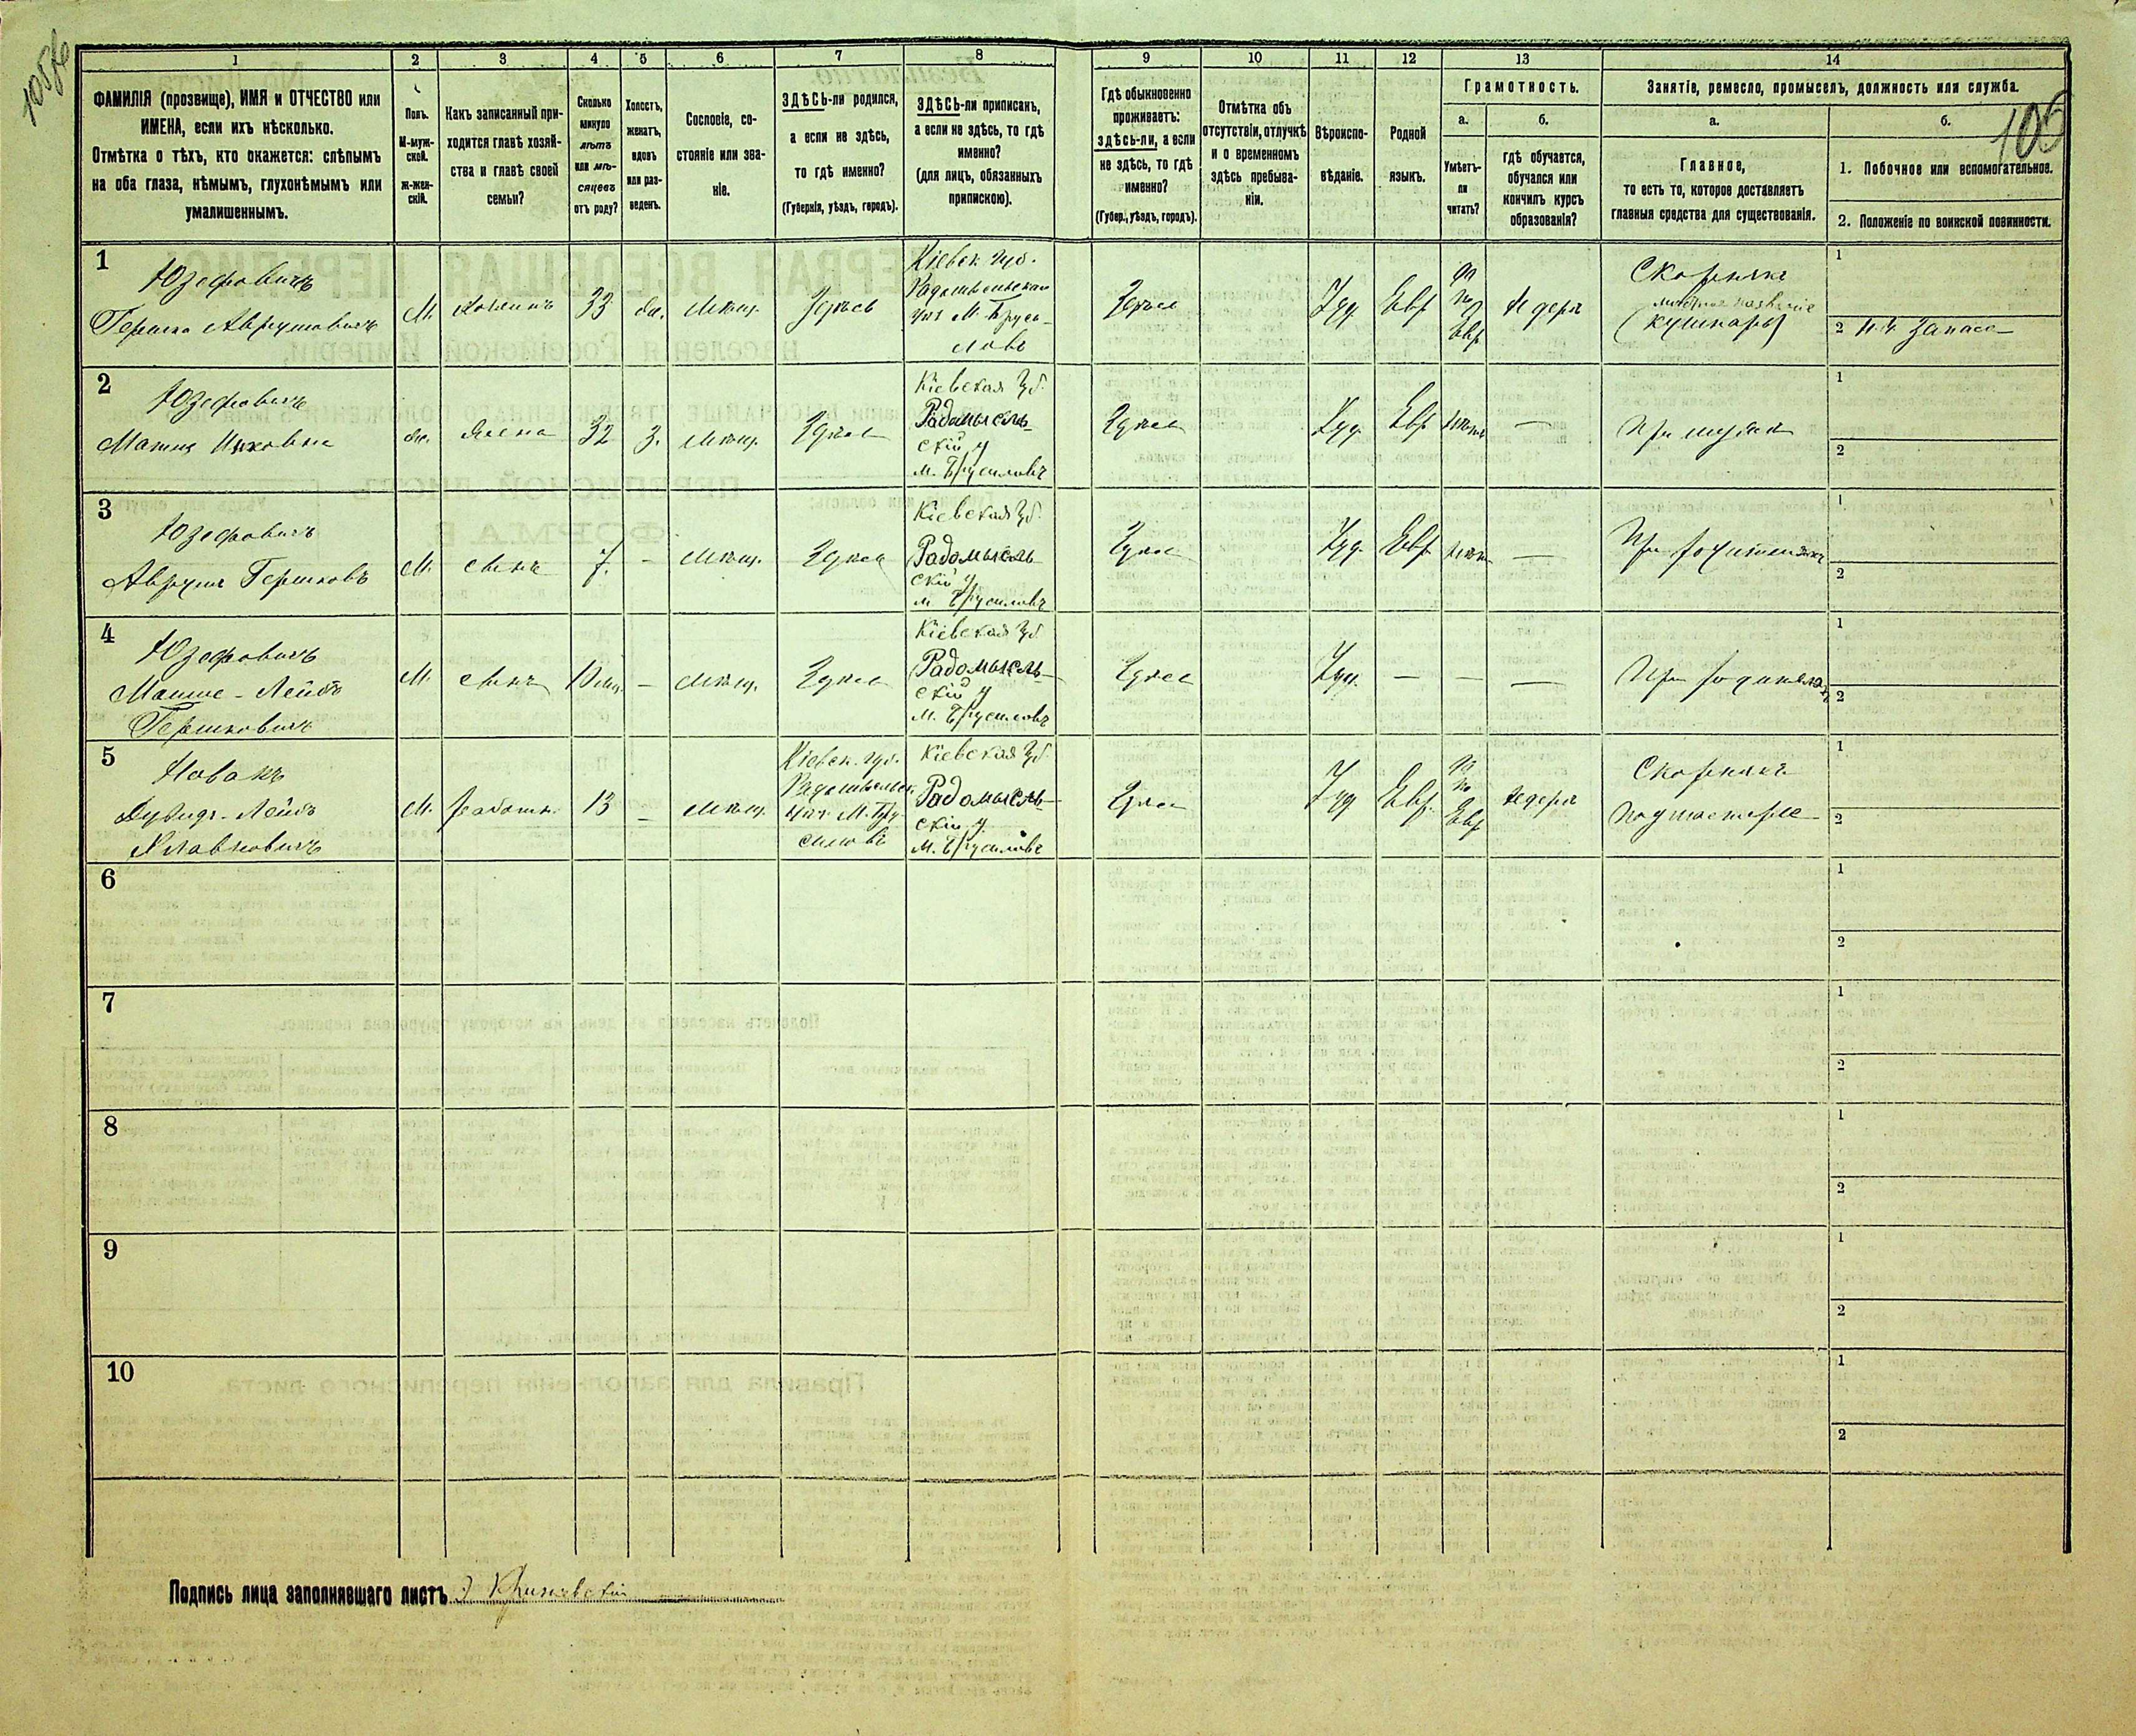 105/6
106
1 2 3 4 5 6 7 8 9 10 11 12 13 14
ФАМИЛІЯ (прозвище), ИМЯ и ОТЧЕСТВО или
ИМЕНА, если ихъ нѣсколько.
Отмѣтка о тѣхъ, кто окажется: слѣпымъ
на оба глаза, нѣмымъ, глухонѣмымъ или
умалишеннымъ.
Полъ.
М-муж-
ской.
ж-жен-
скій.
Какъ записанный при-
ходится главѣ хозяй-
ства и главѣ своей
семьи?
Сколько
минуло
лѣтъ
или мѣ-
сяцевъ
отъ роду?
Холостъ,
женатъ,
вдовъ
или раз-
веденъ.
Сословіе, со-
стояніе или зва-
ніе.
ЗДѢСЬ-ли родился,
а если не здѣсь,
то гдѣ именно?
(Губернія, уѣздъ, городъ).
ЗДѢСЬ-ли приписанъ,
а если не здѣсь, то гдѣ
именно?
(для лицъ, обязанныхъ
припискою).
Гдѣ обыкновенно
проживаетъ:
здѣсь-ли, а если
не здѣсь, то гдѣ
именно?
(Губер., уѣздъ, городъ).
Отмѣтка объ
отсутствіи, отлучкѣ
и о временномъ
здѣсь пребыва-
ніи.
Вѣроиспо-
вѣданіе.
Родной
языкъ.
Грамотность.
а.
Умѣетъ-
ли
читать?
б.
гдѣ обучается,
обучался или
кончилъ курсъ
образованія?
Занятіе, ремесло, промыселъ, должность или служба.
а.
Главное,
то есть то, которое доставляетъ
главныя средства для существованія.
б.
1. Побочное или вспомогательное.
2. Положеніе по воинской повинности.
1
Юзефовичъ
Гершко Аврумовичъ
М.
Хозяинъ
33
жен.
Мѣщ.
Здѣсь
Кіевск. губ.
Радомысльскаго
уѣз. М. Бруси-
ловъ
Здѣсь
Іуд.
Евр.
Да
по
Евр.
Хедеръ
Скорнякъ
мѣстное названіе
(Кушнаръ)
1
2 Запасъ
2
Юзефовичъ
Жена
32
З.
Мѣщ.
Здѣсь
Кіевская губ.
Радомысль-
скій у
м. Брусиловъ
Здѣсь
Іуд.
Евр.
Нѣтъ
—
При мужѣ
1
2
3
Юзефовичъ
Аврумъ Гершковъ
М.
Сынъ
7.
-
Мѣщ.
Здѣсь
Кіевская губ.
Радомысль-
скій у
м. Брусиловъ
Здѣсь
Іуд.
Евр.
Нѣтъ
—
При родителяхъ
1
2
4
Юзефовичъ
Мошко-Лейбъ
Гершковичъ
М.
Сынъ
—
Мѣщ.
Здѣсь
Кіевская губ.
Радомысль-
скій у
м. Брусиловъ
Здѣсь
Іуд.
—
—
—
При родителяхъ
1
2
5
Новакъ
Дувидъ-Лейбъ
М.
работн.
13
-
Мѣщ.
Кіевск. губ.
Радомысльск.
уѣз. М. Бру-
силовъ
Кіевская губ.
Радомысль-
скій у.
М. Брусиловъ
Здѣсь
Іуд
Евр.
Да
по
Евр
Хедеръ
Скорнякъ
подмастерье
1
2
6
1
2
7
1
2
8
1
2
9
1
2
10
1
2
Подпись лица заполнявшаго листъ